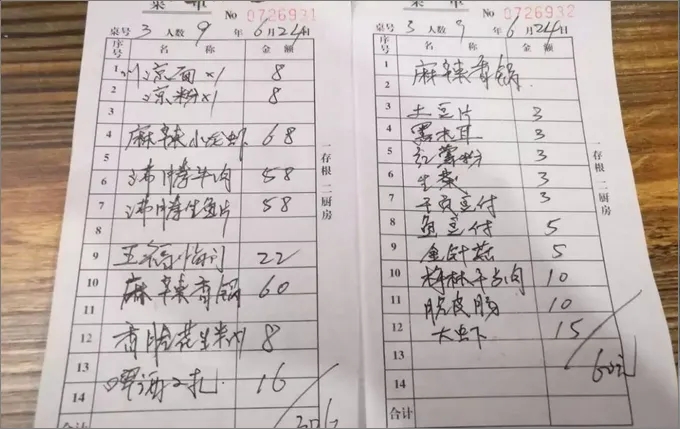 菜单
No 0726931
桌号 3 人数 9 年 6月24日
序号 名称 金额
1 川凉面×1 8
2 凉粉×1 8
3
4 麻辣小龙虾 68
5
6 沸腾牛肉 58
7 沸腾生鱼片 58
8
9 22
10 麻辣香锅 60
11
12 香脆花生米 8
13
14 啤酒2扎 16
合计
一存根 二厨房
菜单
No 0726932
桌号 3 人数 9 年 6月24日
序号 名称 金额
1 麻辣香锅
2
3 土豆片 3
4 黑木耳 3
5 红薯粉 3
6 生菜 3
7 千页豆付 3
8 鱼豆付 5
9 金针菇 5
10 梅林午餐肉 10
11 脆皮肠 10
12 大虾 15
13 60元
14
合计
一存根 二厨房